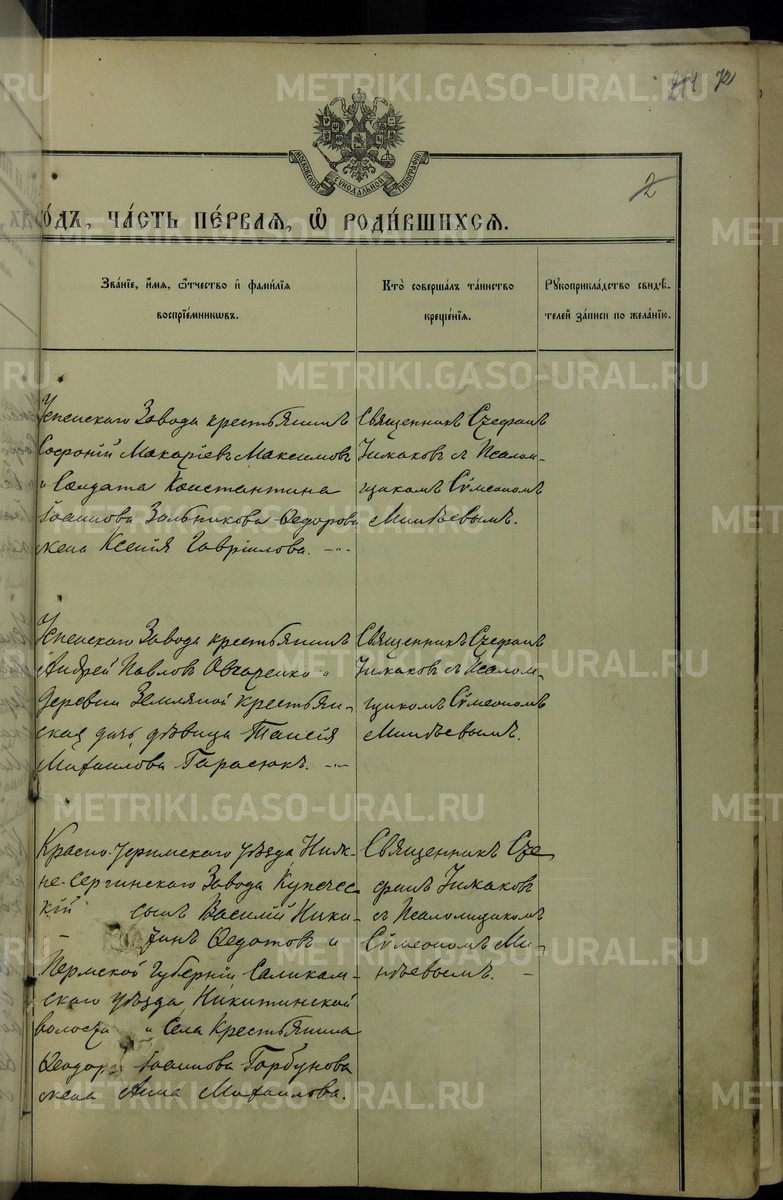 METRIKI.GASO-URAL.RU
72
МОСКОВСКОЙ СѴНОДАЛЬНОЙ ТИПОГРАФІИ
2
го́дъ, ча́сть пе́рваѧ, ѡ҆ роди́вшихсѧ.
Зва́нїе, и҆́мѧ, ѻ҆́тчество и҆ фами́лїѧ
воспрїе́мникѡвъ.
Кто̀ соверша́лъ та́инство
креще́нїѧ.
Рꙋкоприкла́дство свидѣ́-
телей за́писи по жела́нїю.
Успенскаго Завода крестьянинъ
Софроній Макаріевъ Максимовъ
и Солдата Константина
Іоаннова Федорова
жена Ксенія Гавріилова.
Священникъ Стефанъ
съ Псалом-
щикомъ Сѵмеономъ
Минѣевымъ.
Успенскаго Завода крестьянинъ
Андрей Павловъ Овчаренко и
деревни Земляной крестьян-
ская дочь дѣвица Таисія
Михаилова Гарасюкъ.
Священникъ Стефанъ
съ Псалом-
щикомъ Сѵмеономъ
Минѣевымъ.
Красно-уфимскаго уѣзда Ниж-
не-Сергинскаго Завода Купечес-
кій сынъ Василій Ники-
тинъ Федотовъ и
Пермской Губерніи Саликам-
скаго уѣзда, Никитинской
волости и Села Крестьянина
Феодора Іоаннова Горбунова
жена Анна Михаилова.
Священникъ Сте-
фанъ
съ Псаломщикомъ
Сѵмеономъ Ми-
нѣевымъ.